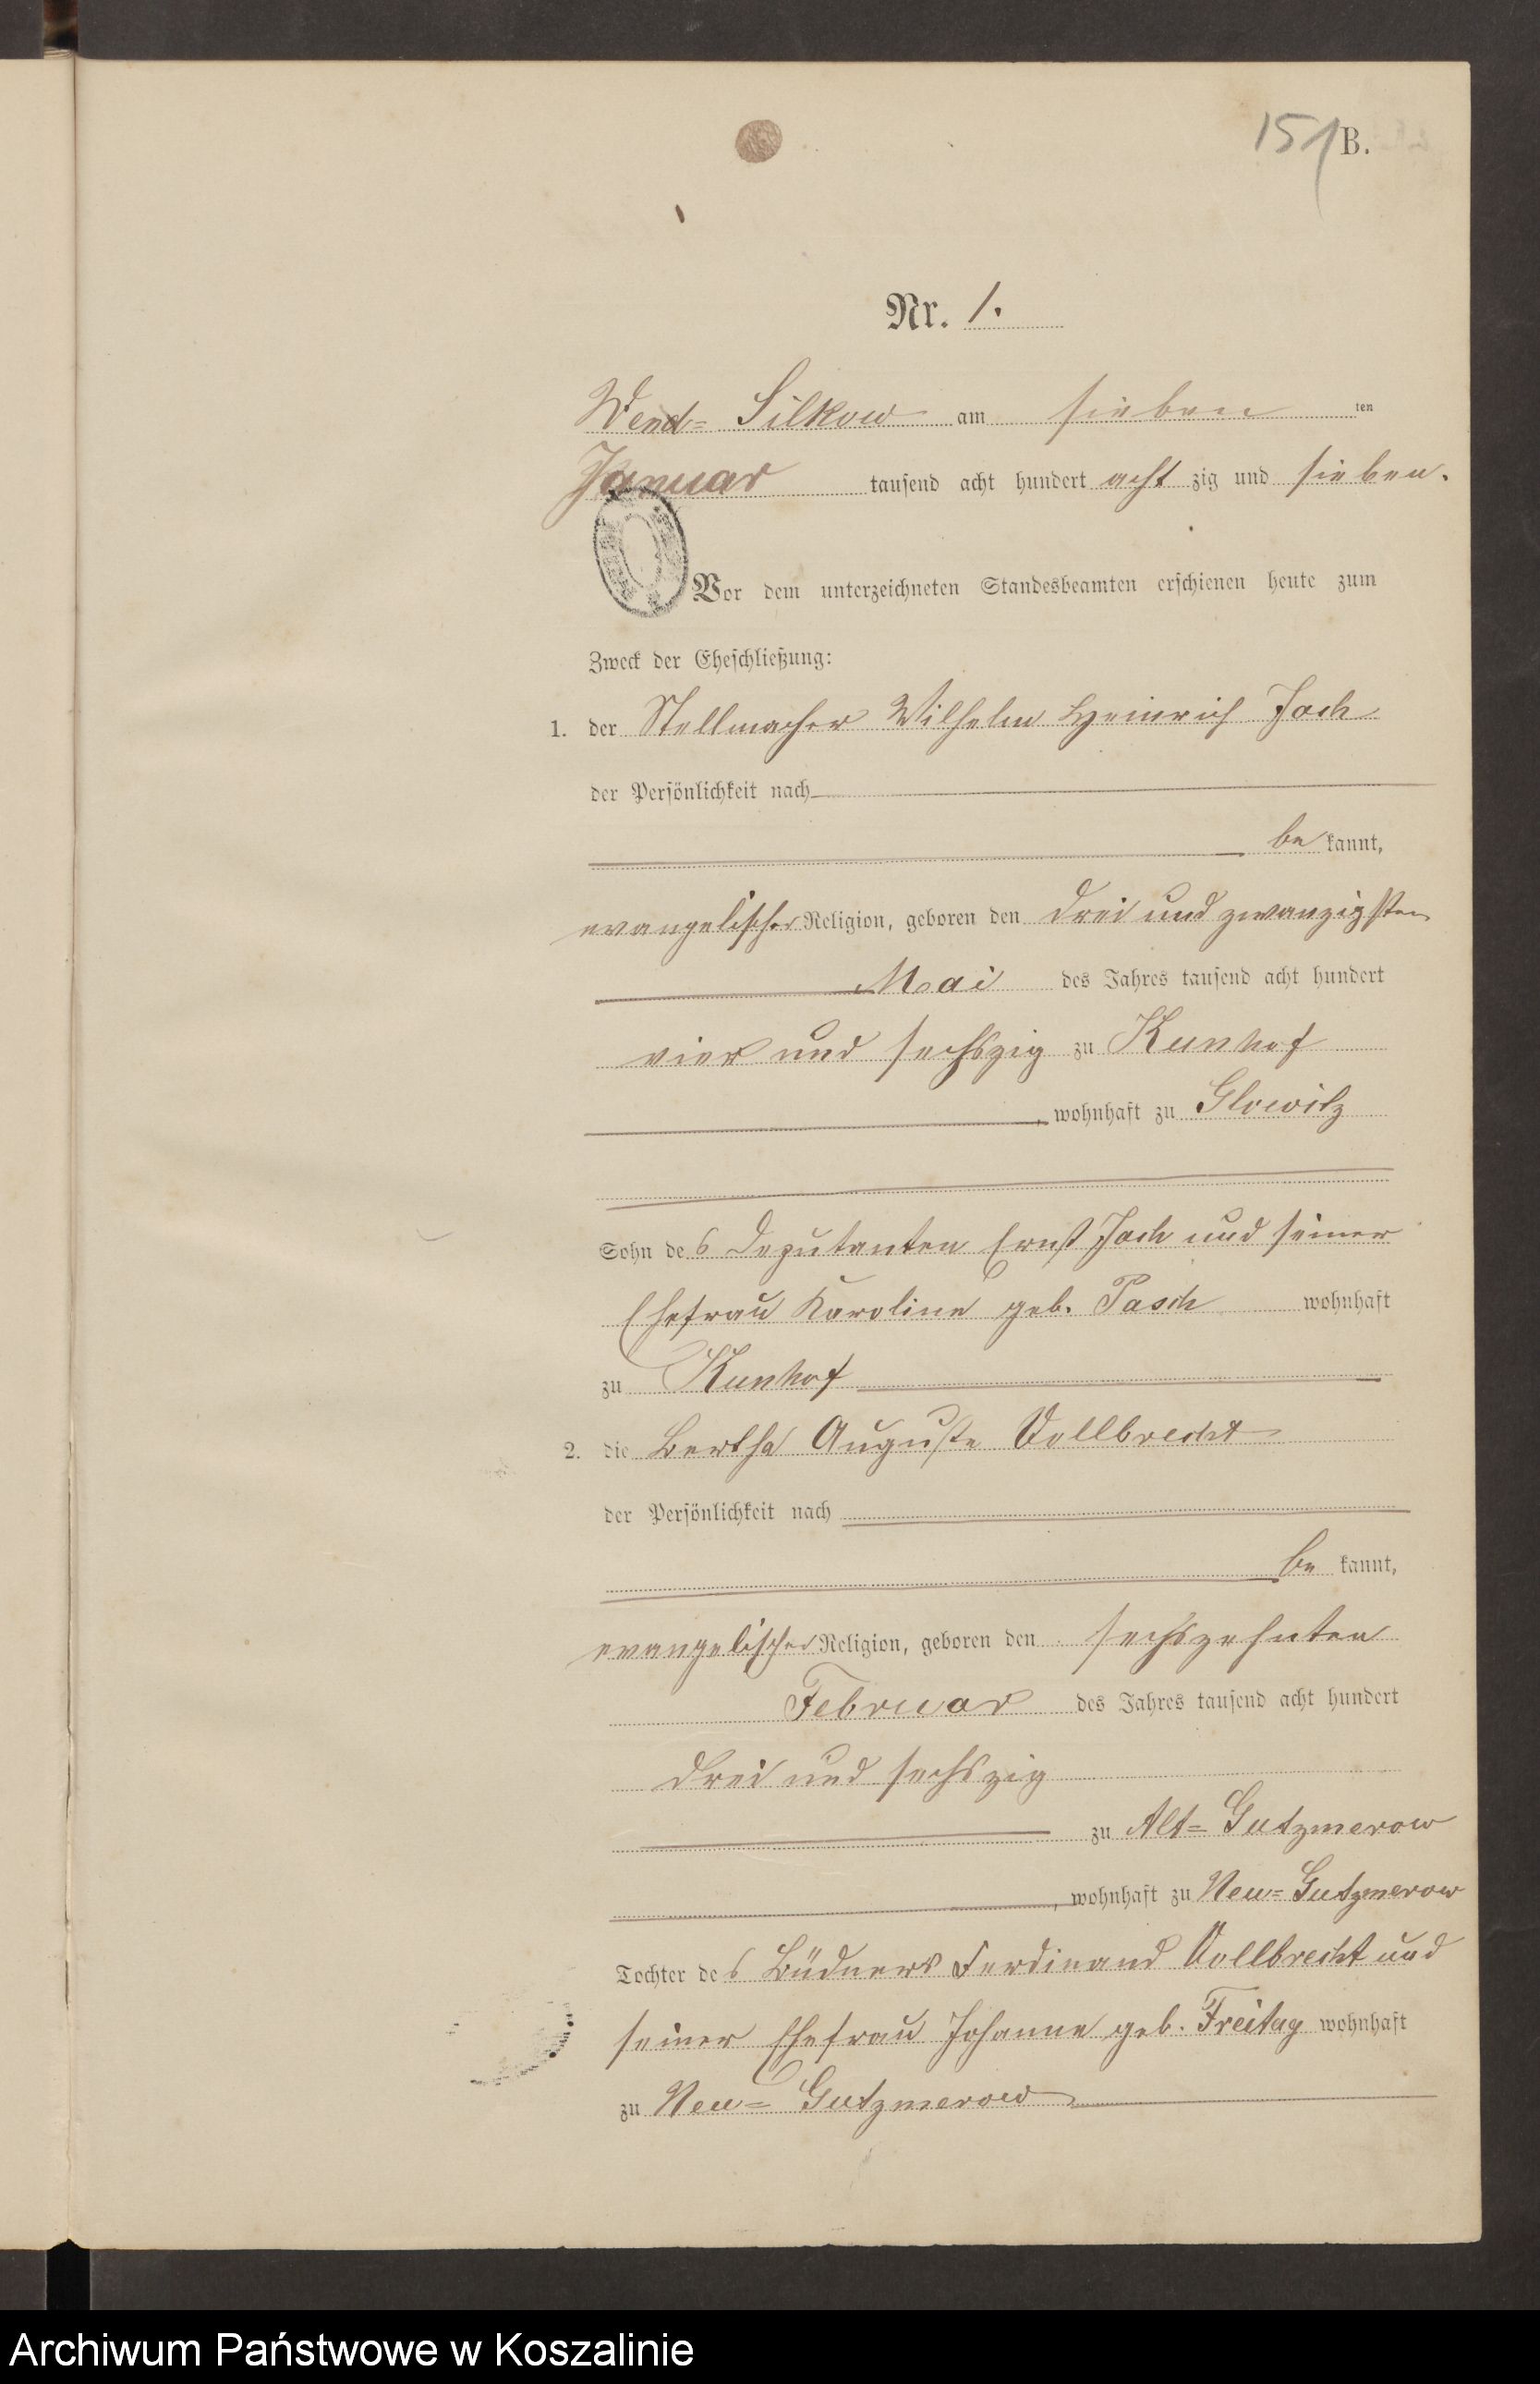 151 B.
Nr. 1.
Wend= Silkow am sieben ten
Januar tausend acht hundert acht zig und sieben.
Vor dem unterzeichneten Standesbeamten erschienen heute zum
Zweck der Eheschließung:
1. der Stellmacher Wilhelm Heinrich Joch
der Persönlichkeit nach
be kannt,
evangelischer Religion, geboren den drei und zwanzigsten
Mai des Jahres tausend acht hundert
vier und sechszig zu Kunhof
, wohnhaft zu Glowitz
Sohn des Deputanten Ernst Joch und seiner
Ehefrau Karoline geb. Pasch wohnhaft
zu Kunhof
2. die Bertha Auguste Vollbrecht
der Persönlichkeit nach
be kannt,
evangelischer Religion, geboren den sechszehnten
Februar des Jahres tausend acht hundert
drei und sechszig
zu Alt= Gutzmerow
, wohnhaft zu Neu= Gutzmerow
Tochter des Büdners Ferdinand Vollbrecht und
seiner Ehefrau Johanne geb. Freitag wohnhaft
zu Neu= Gutzmerow
Archiwum Państwowe w Koszalinie